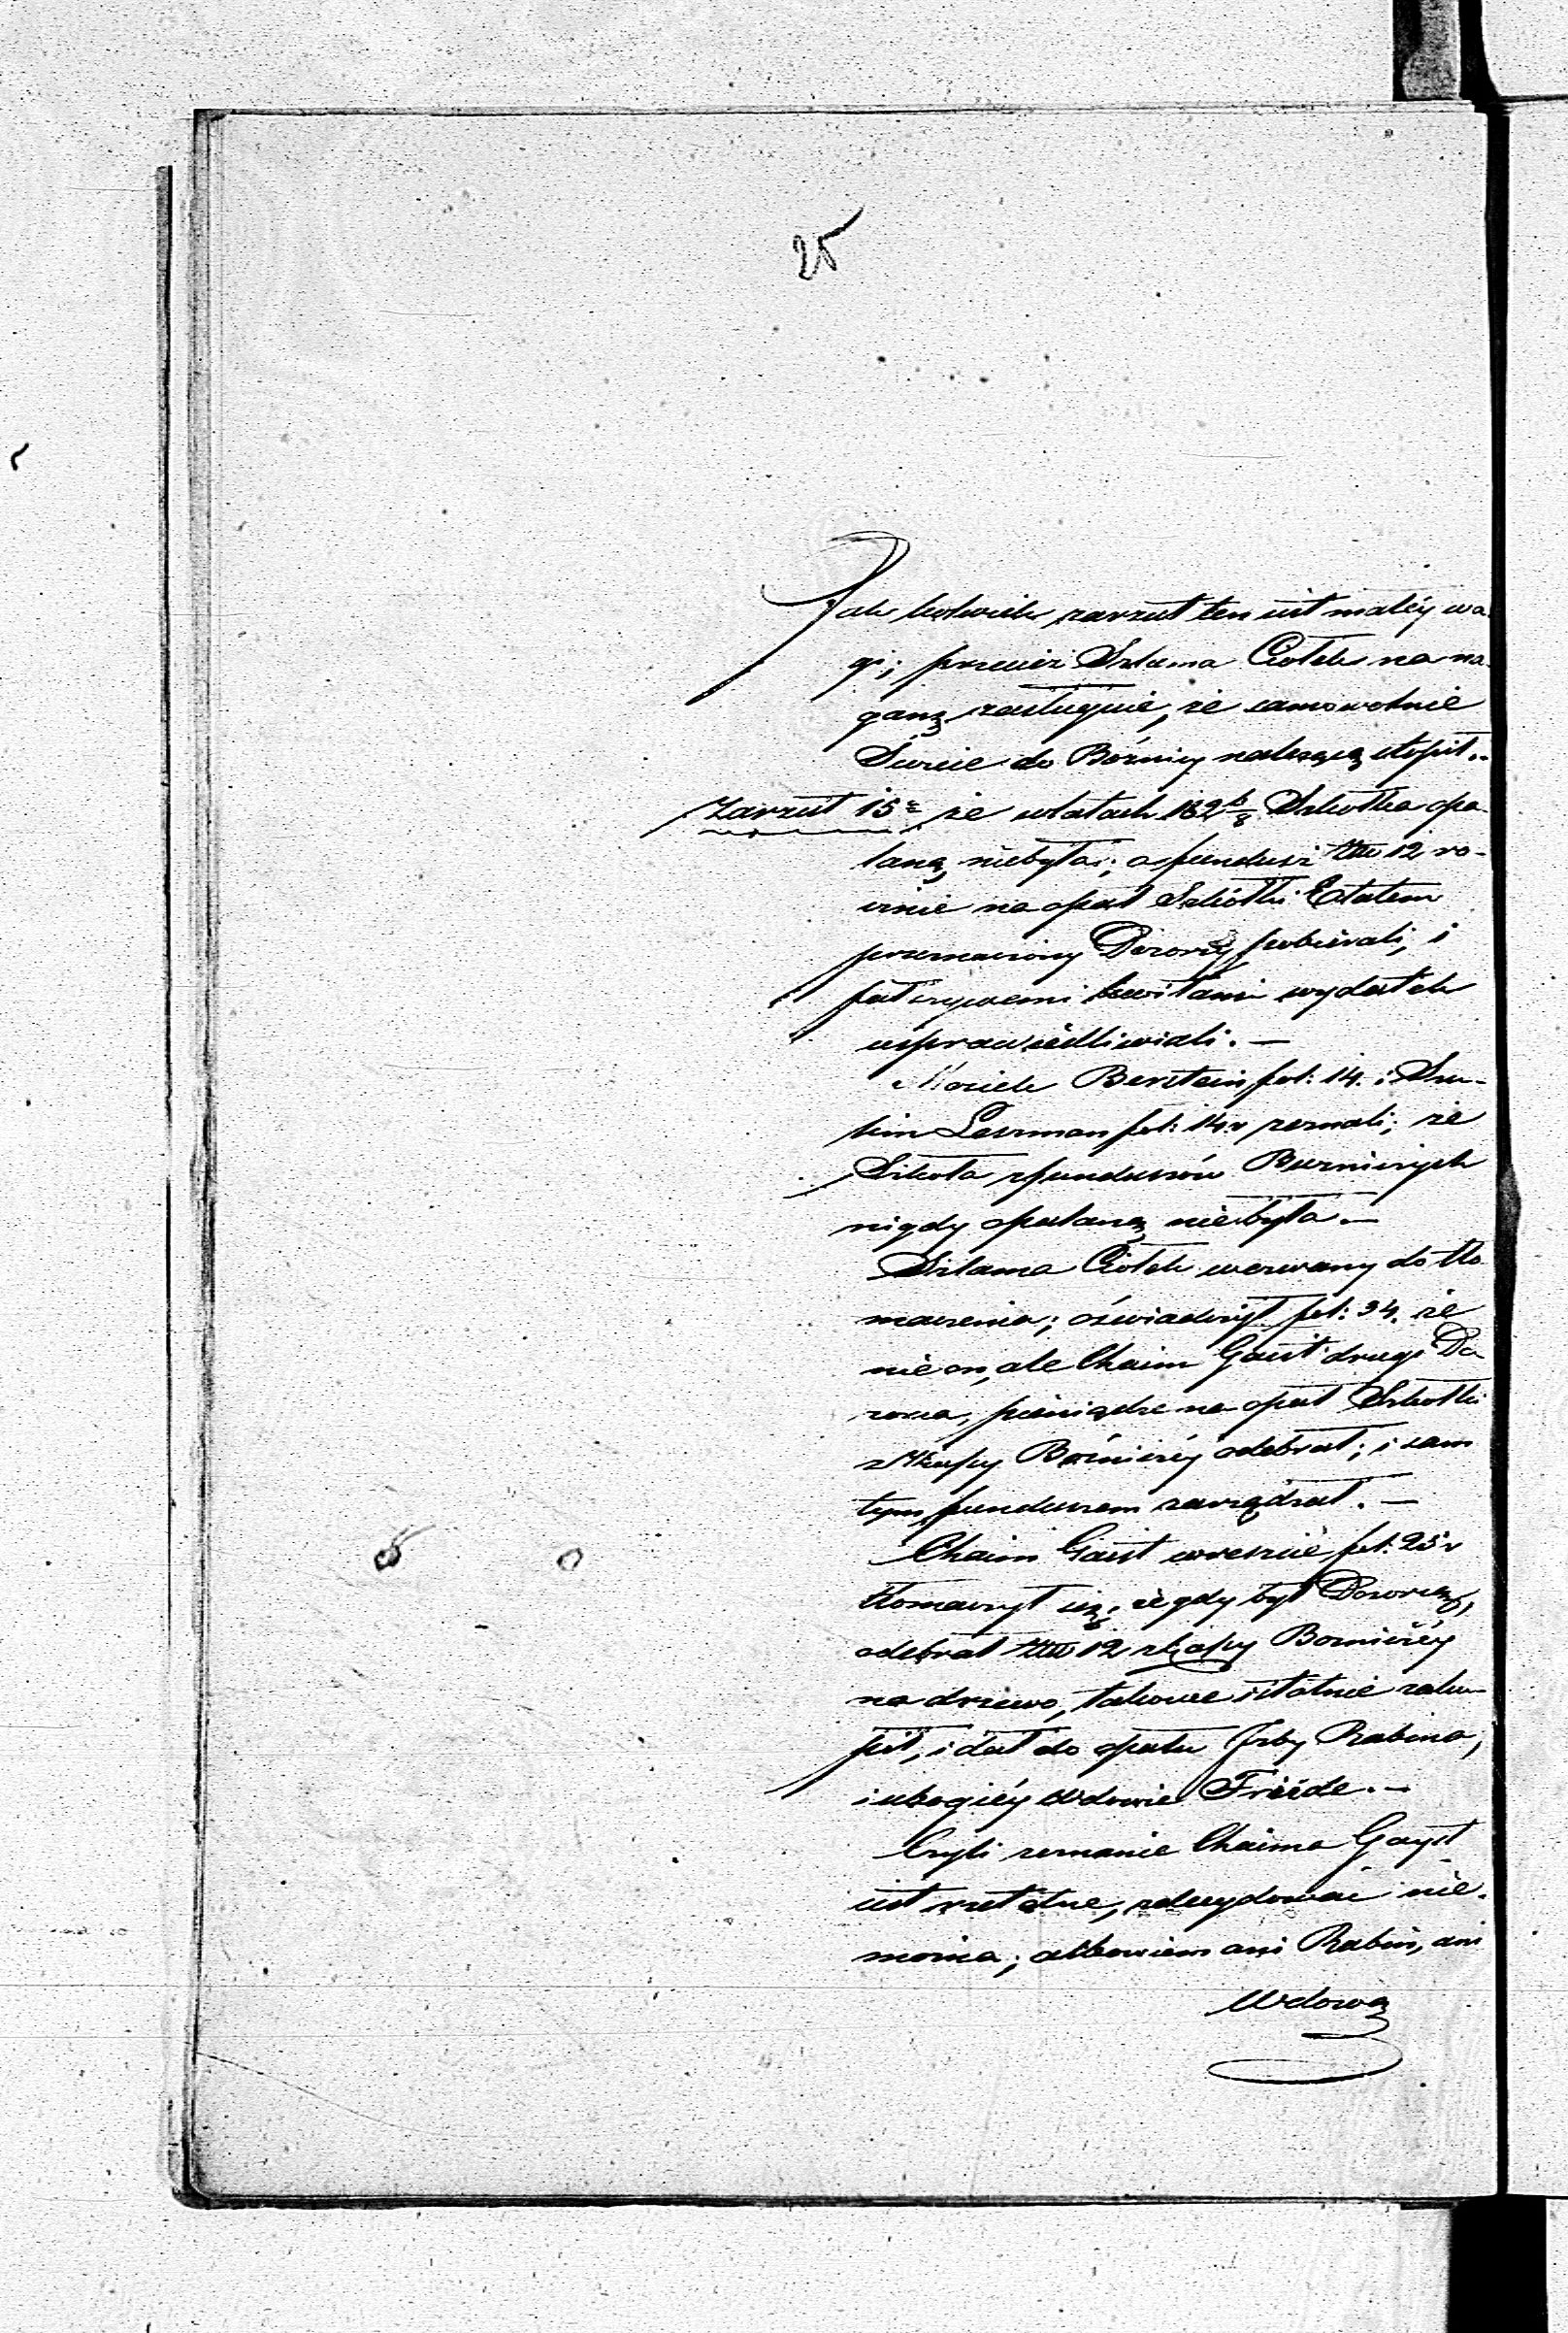 25
Jak kolwiek zarzut ten iest małéy wa-
gi; przecież Szlama Ciołek na na-
ganę zasługuie, że samowolnie
Świece do Bóżnicy należącą stopił.
Zarzut 15ty że wlatach 182 6/8 Szkołka opa-
laną niebyła; a fundusz 12 ro-
cznie na opał Szkółki Etatem
przeznaczony Dozorcy pobierali, i
fałszywemi kwitami wydatek
usprawiedliwiali. —
Mosiek Berstein fol: 14. i Szu-
lim Lesrman fol: 14v zeznali; że
Szkoła zfunduszów Buzniczych
nigdy opalaną niebyła. —
Szlama Ciołek wezwany do tło-
maczenia; oświadczył fol: 34. że
nie on, ale Chaim Gaist drugi Do-
zorca, pieniądze na opał Szkołki
z Kassy Bóżniczéy odebrał; i sam
tym funduszem zarządzał. —
Chaim Gaist wreszcie fol: 25v
tłomaczył się; że gdy był Dozorcą,
odebrał 12 z Kassy Bozniczéy
na drzewo, takowe istotnie zaku-
pił, i dał do opału Izby Rabina,
i ubogiéy Wdowie Friede. —
Czyli zeznanie Chaima Gayst
iest rzetelne, zdecydować nie-
można; albowiem ani Rabin, ani
Wdowa